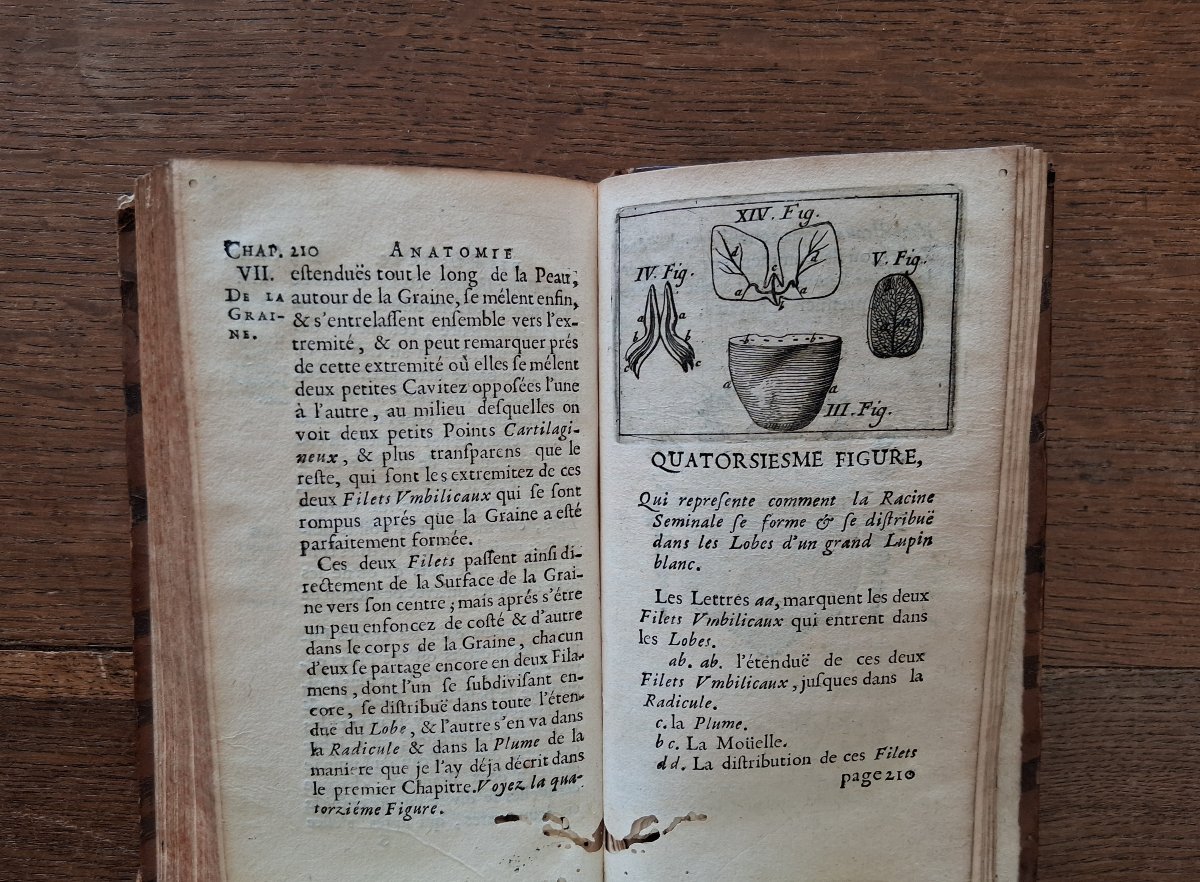 CHAP. 210 ANATOMIE
VII. eſtenduës tout le long de la Peau,
DE LA autour de la Graine, ſe mêlent enfin,
GRAI- & s'entrelaſſent enſemble vers l'ex-
NE. tremité, & on peut remarquer prés
de cette extremité où elles ſe mêlent
deux petites Cavitez oppoſées l'une
à l'autre, au milieu deſquelles on
voit deux petits Points Cartilagi-
neux, & plus tranſparens que le
reſte, qui ſont les extremitez de ces
deux Filets Vmbilicaux qui ſe ſont
rompus aprés que la Graine a eſté
parfaitement formée.
Ces deux Filets paſſent ainſi di-
rectement de la Surface de la Grai-
ne vers ſon centre; mais aprés s'être
un peu enfoncez de coſté & d'autre
dans le corps de la Graine, chacun
d'eux ſe partage encore en deux Fila-
mens, dont l'un ſe ſubdiviſant en-
core, ſe diſtribuë dans toute l'éten-
duë du Lobe, & l'autre s'en va dans
la Radicule & dans la Plume de la
maniere que je l'ay déja décrit dans
le premier Chapitre. Voyez la qua-
torziéme Figure.
XIV. Fig.
d d
c
a a
b
IV. Fig.
a a
b b
c c
V. Fig.
b b
a a
III. Fig.
QUATORSIESME FIGURE,
Qui repreſente comment la Racine
Seminale ſe forme & ſe diſtribuë
dans les Lobes d'un grand Lupin
blanc.
Les Lettres aa, marquent les deux
Filets Vmbilicaux qui entrent dans
les Lobes.
ab. ab. l'étenduë de ces deux
Filets Vmbilicaux, juſques dans la
Radicule.
c. la Plume.
bc. La Moüelle.
dd. La diſtribution de ces Filets
page 210